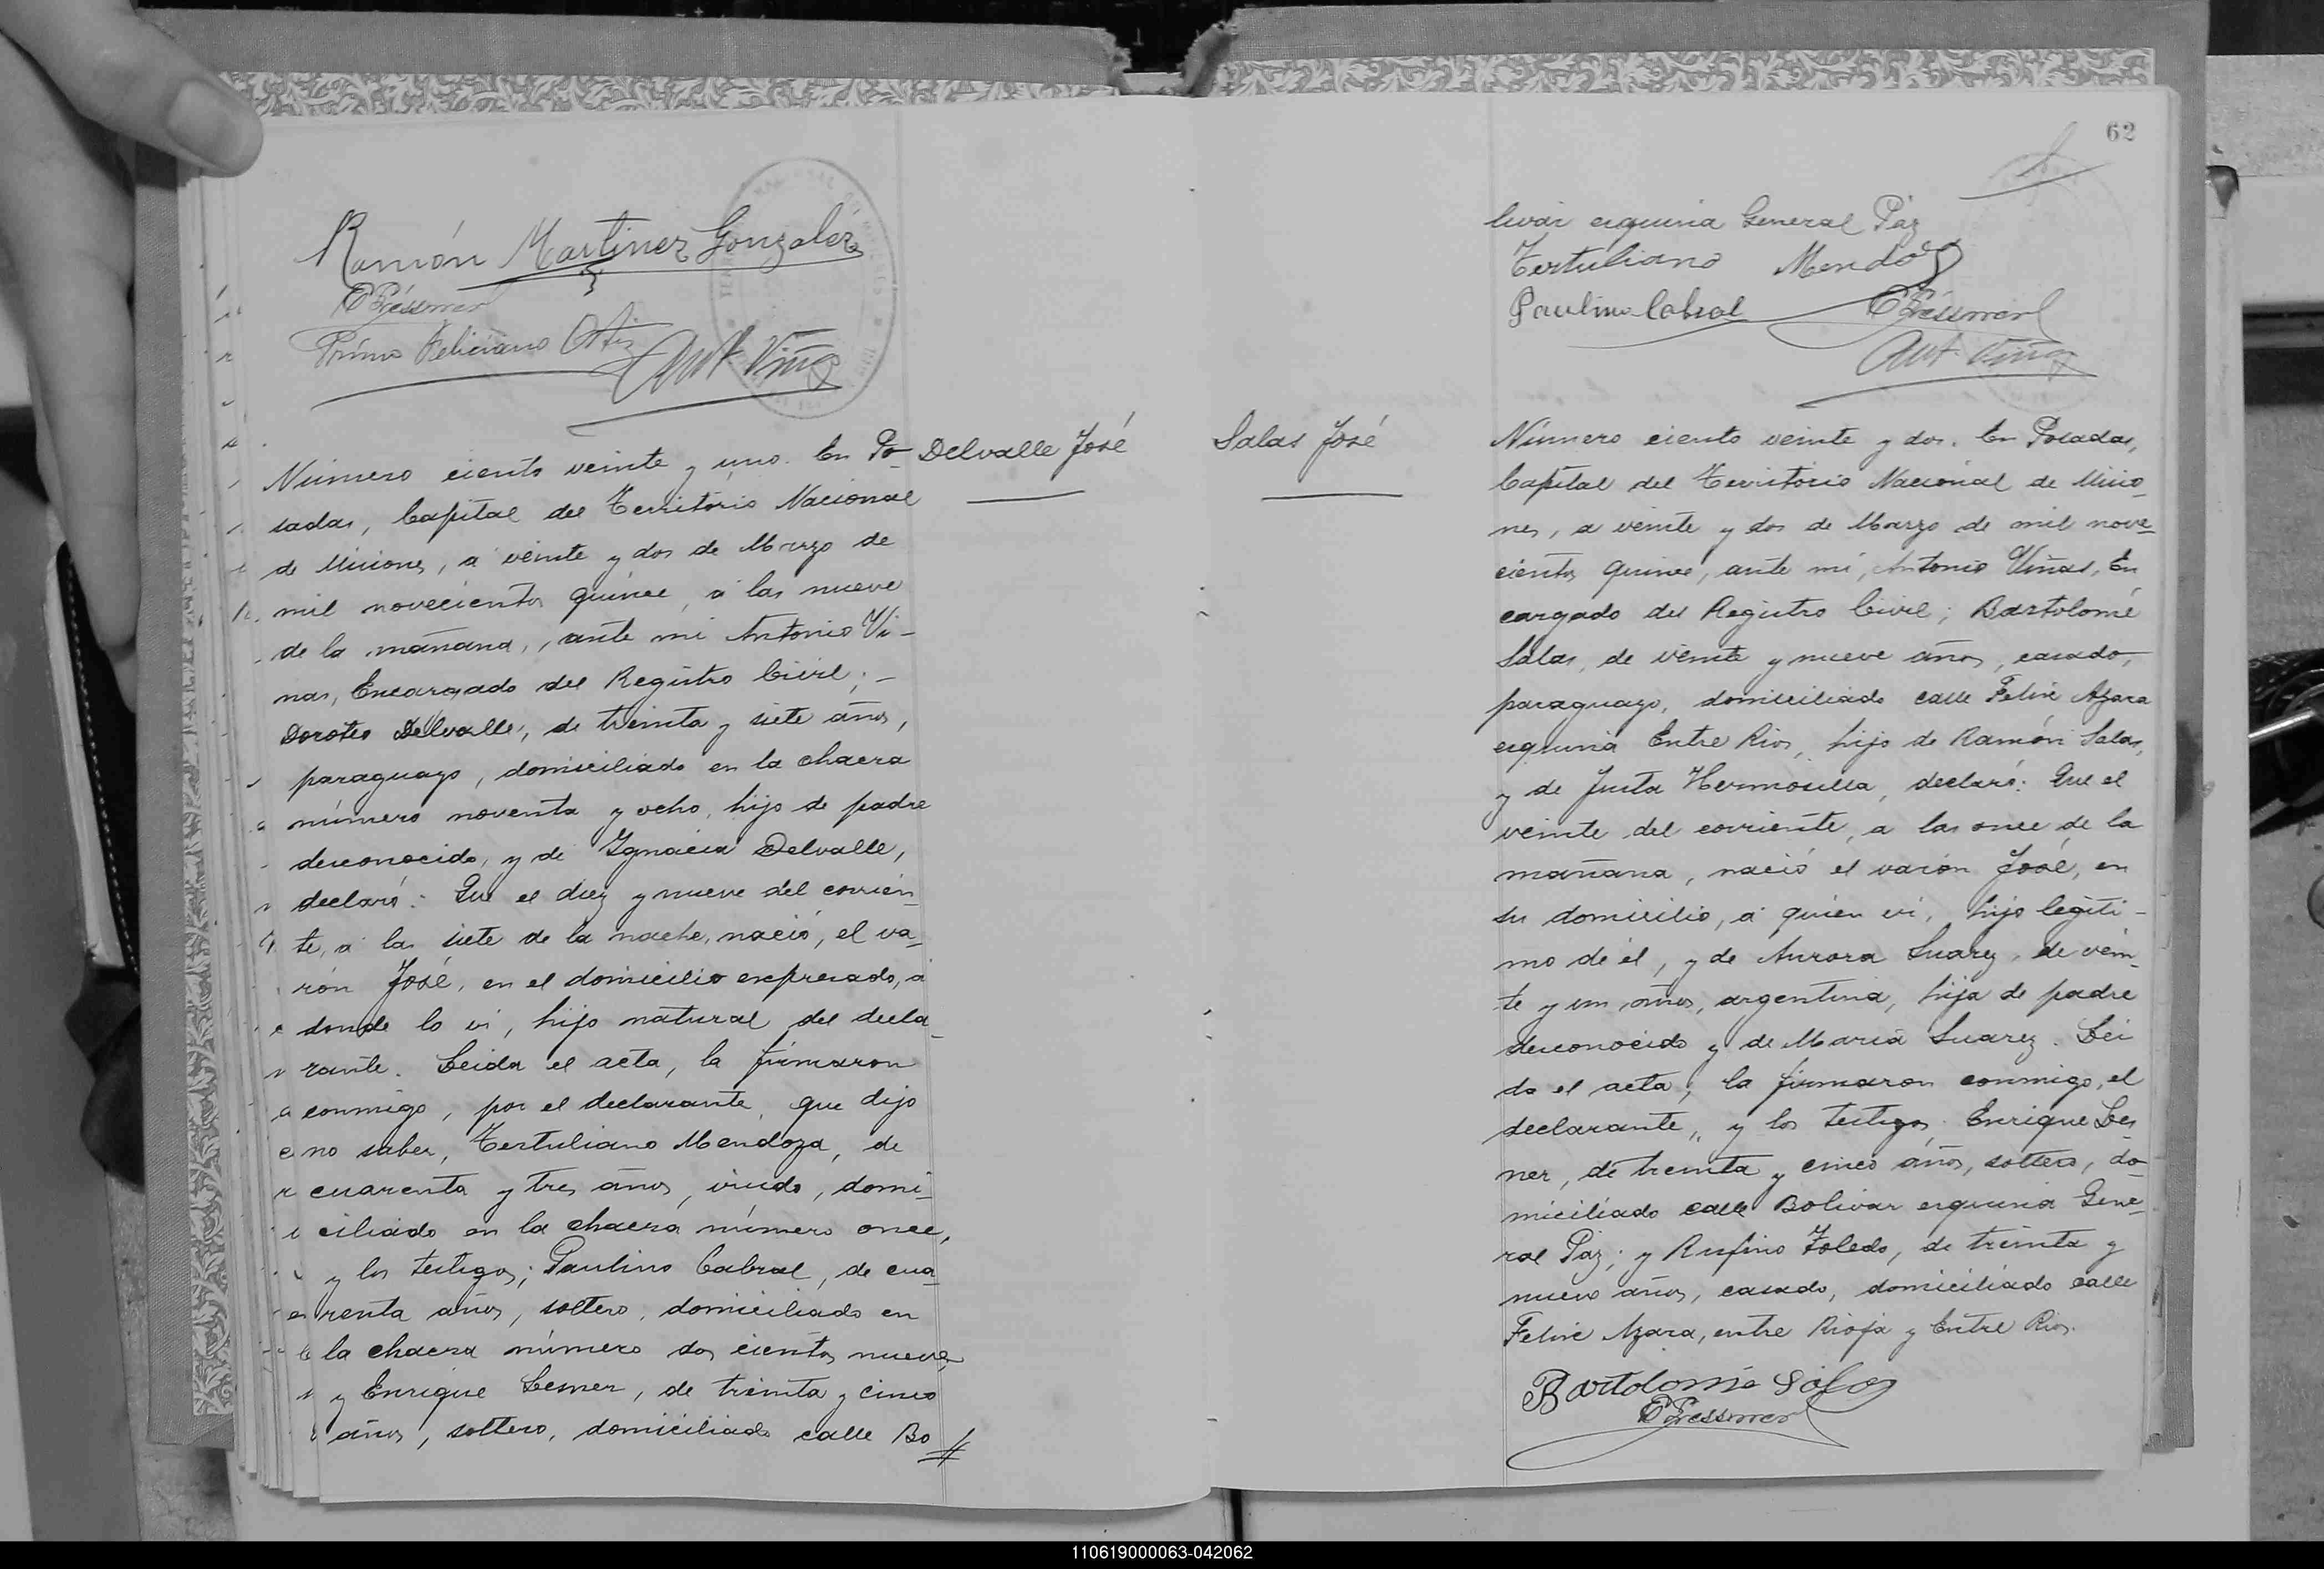 Ramón Martinez Gonzalez
Primo Feliciano
Ant Viñas
Número ciento veinte y uno. En Po-
sadas, Capital del Territorio Nacional
de Misiones, a veinte y dos de Marzo de
mil novecientos quince, a las nueve
de la mañana, ante mi Antonio Vi-
ñas, Encargado del Registro Civil; -
Doroteo Delvalle, de treinta y siete años,
paraguayo, domiciliado en la chacra
número noventa y ocho, hijo de padre
desconocido, y de Ignacia Delvalle,
declaró: Que el diez y nueve del corrien-
te, a las siete de la noche, nació, el va-
rón José, en el domicilio expresado, a
donde lo vi, hijo natural del decla-
rante. Leida el acta, la firmaron
conmigo, por el declarante, que dijo
no saber, Tertuliano Mendoza, de
cuarenta y tres años, viudo, domi-
ciliado en la chacra número once,
y los testigos; Paulino Cabral, de cua-
renta años, soltero, domiciliado en
la chacra número dos cientos nueve,
y Enrique Lesner, de treinta y cinco
años, soltero, domiciliado calle Bo
Delvalle José
62
livar esquina General Paz
Tertuliano Mendoza
Paulino Cabral
Ant Viñas
Salas José
Número ciento veinte y dos. En Posadas,
Capital del Territorio Nacional de Misio-
nes, a veinte y dos de Marzo de mil nove-
cientos quince, ante mi, Antonio Viñas, En
cargado del Registro Civil; Bartolomé
Salas, de veinte y nueve años, casado,
paraguayo, domiciliado calle Felix Azara
esquina Entre Rios, hijo de Ramón Salas,
y de Justa Hermosilla, declaró: Que el
veinte del corriente, a las once de la
mañana, nació el varón José, en
su domicilio, a quien vi, hijo legiti-
mo de él, y de Aurora Suarez, de vein-
te y un años, argentina, hija de padre
desconocido y de Maria Suarez. Lei
da el acta, la firmaron conmigo, el
declarante, y los testigos: Enrique Les
ner, de treinta y cinco años, soltero, do-
miciliado calle Bolivar esquina Gene-
ral Paz; y Rufino Toledo, de treinta y
nueve años, casado, domiciliado calle
Felix Azara, entre Rioja y Entre Rios.
Bartolomé Salas
110619000063-042062